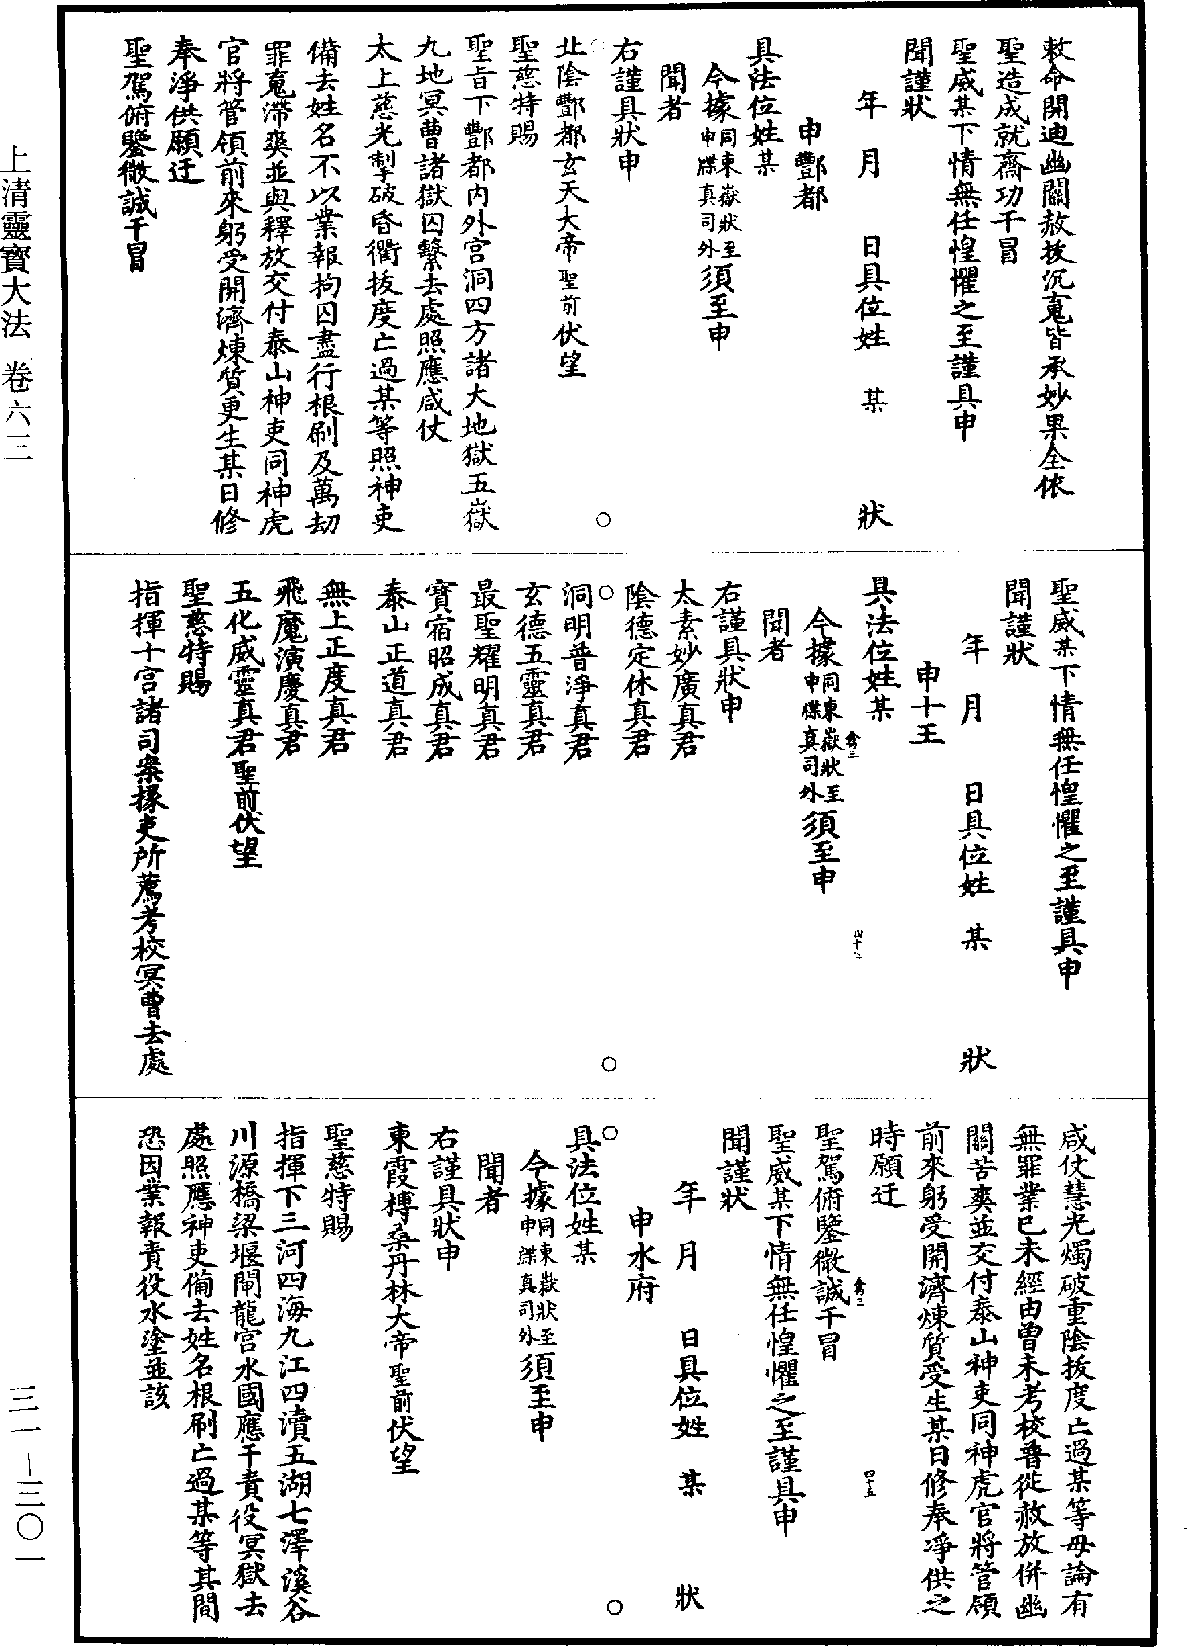 敕命開迪幽關赦拔沉䰟皆承妙果全依
聖造成就齋功干冒
聖威某下情無任惶懼之至謹具申
聞謹狀
年　月　日具位姓　某　狀
申酆都
具法位姓某
今據同東嶽狀至申牒真司外須至申
聞者
右謹具狀申
北陰酆都玄天大帝聖前伏望
聖慈特賜
聖旨下酆都內外宫洞四方諸大地獄五嶽
九地冥曹諸獄囚繫去處照應咸仗
太上慈光掣破昏衢拔度亡過某等照神吏
備去姓名不以業報拘囚盡行根刷及萬劫
罪䰟滯爽並與釋放交付泰山神吏同神虎
官將管領前來躬受開濟煉質更生某日修
奉淨供願迂
聖駕俯鑒微誠干冒
聖威某下情無任惶懼之至謹具申
聞謹狀
年　月　日具位姓　某　狀
申十王
具法位姓某
今據同東嶽狀至申牒真司外須至申
聞者
右謹具狀申
太素妙廣真君
陰德定休真君
洞明普淨真君
玄德五靈真君
最聖耀明真君
寶宿昭成真君
泰山正道真君
無上正度真君
飛魔演慶真君
五化威靈真君聖前伏望
聖慈特賜
指揮十宮諸司案掾吏所薦考校冥曹去處
咸仗慧光燭破重陰拔度亡過某等毋論有
無罪業已未經由曾未考校普從赦放併幽
關苦爽並交付泰山神吏同神虎官將管領
前來躬受開濟煉質受生某日修奉淨供之
時願迂
聖駕俯鑒微誠干冒
聖威某下情無任惶懼之至謹具申
聞謹狀
年　月　日具位姓　某　狀
申水府
具法位姓某
今據同東嶽狀至申牒真司外須至申
聞者
右謹具狀申
東霞榑桑丹林大帝聖前伏望
聖慈特賜
指揮下三河四海九江四瀆五湖七澤溪谷
川源橋梁堰閘龍宮水國應干責役冥獄去
處照應神吏備去姓名根刷亡過某等其間
恐因業報責役水塗並該
上清靈寶大法　卷六三
三一—三〇一